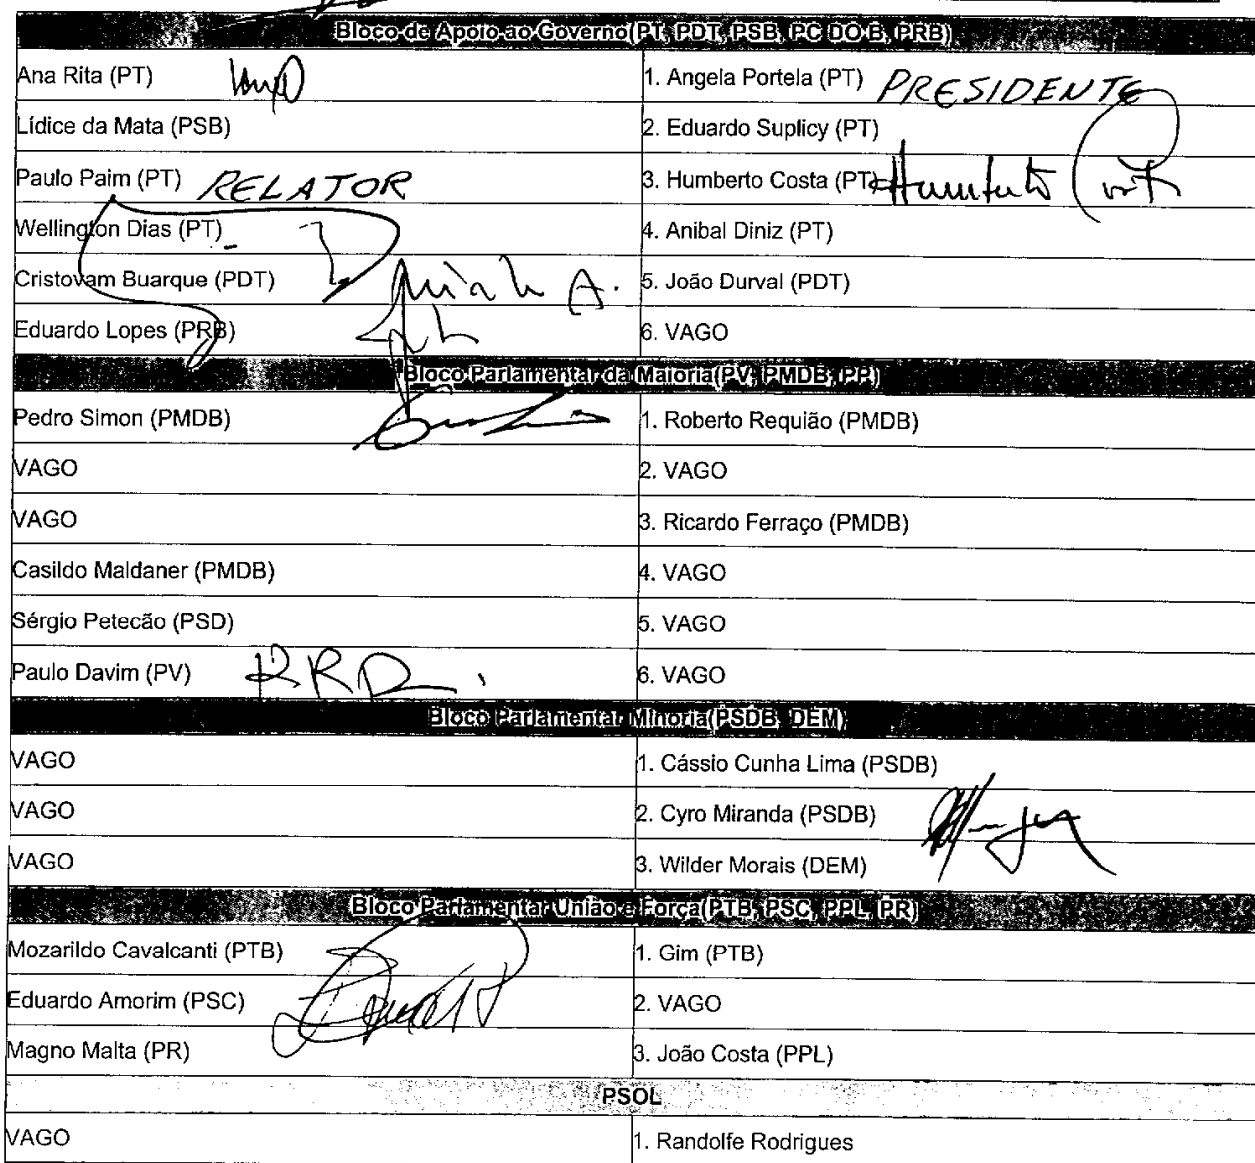 Bloco de Apoio ao Governo(PT, PDT, PSB, PC DO B, PRB)
Ana Rita (PT) 1. Angela Portela (PT) PRESIDENTE
Lídice da Mata (PSB) 2. Eduardo Suplicy (PT)
Paulo Paim (PT) RELATOR 3. Humberto Costa (PT) Humberto Costa
Wellington Dias (PT) 4. Anibal Diniz (PT)
Cristovam Buarque (PDT) 5. João Durval (PDT)
Eduardo Lopes (PRB) 6. VAGO
Bloco Parlamentar da Maioria(PV, PMDB, PP)
Pedro Simon (PMDB) 1. Roberto Requião (PMDB)
VAGO 2. VAGO
VAGO 3. Ricardo Ferraço (PMDB)
Casildo Maldaner (PMDB) 4. VAGO
Sérgio Petecão (PSD) 5. VAGO
Paulo Davim (PV) 6. VAGO
Bloco Parlamentar Minoria(PSDB, DEM)
VAGO 1. Cássio Cunha Lima (PSDB)
VAGO 2. Cyro Miranda (PSDB)
VAGO 3. Wilder Morais (DEM)
Bloco Parlamentar União e Força(PTB, PSC, PPL, PR)
Mozarildo Cavalcanti (PTB) 1. Gim (PTB)
Eduardo Amorim (PSC) 2. VAGO
Magno Malta (PR) 3. João Costa (PPL)
PSOL
VAGO 1. Randolfe Rodrigues